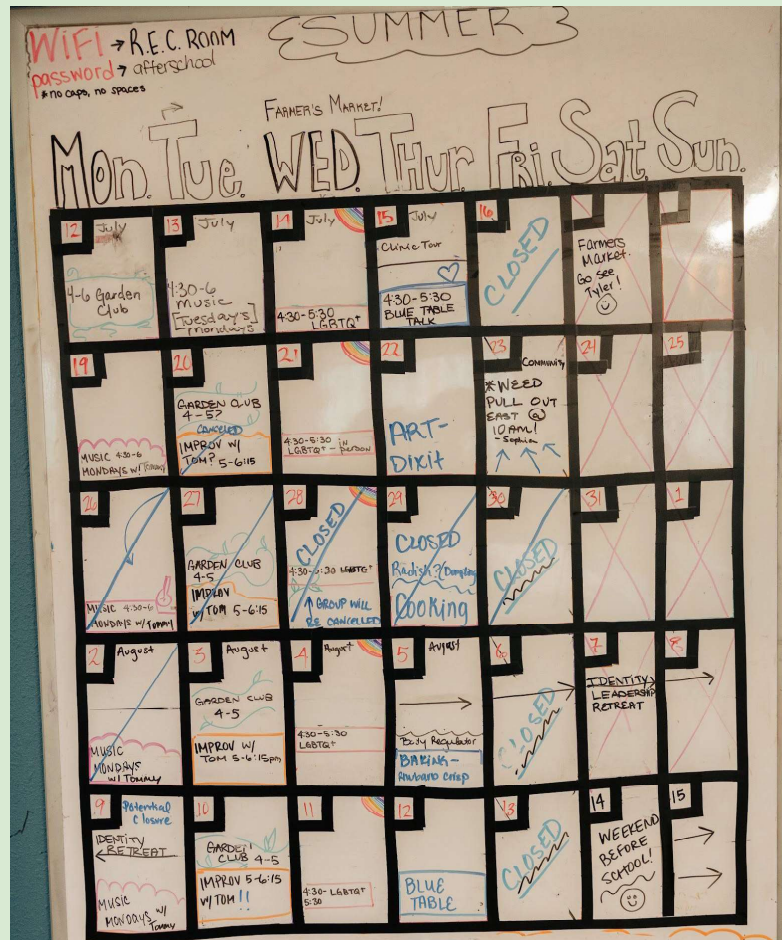 SUMMER 3
WiFi → R.E.C. ROOM
password → afterschool
*no caps, no spaces
FARMER'S MARKET!
Mon. Tue. WED. Thur. Fri. Sat. Sun.
12 July
4-6 Garden
Club
13 July
4:30-6
music
[Tuesday's]
mondays
14 July
4:30-5:30
LGBTQ+
15 July
Clinic Tour
4:30-5:30
BLUE TABLE
TALK
16
CLOSED
Farmers
Market.
Go see
Tyler!
19
MUSIC 4:30-6
MONDAYS W/ Tommy
20
GARDEN CLUB
4-5?
CANCELED
IMPROV W/
TOM? 5-6:15
21
4:30-5:30 in
LGBTQ+ - person
22
ART-
Dixit
23 Community
*WEED
PULL OUT
EAST @
10AM!
-Sophia
24
25
26
MUSIC 4:30-6
MONDAYS W/ Tommy
27
GARDEN CLUB
4-5
IMPROV
W/ TOM 5-6:15
28
CLOSED
4:30-5:30 LGBTQ+
↑ GROUP WILL
BE CANCELLED
29
CLOSED
Radish?
Cooking
30
CLOSED
31
1
2 August
MUSIC
MONDAYS
W/ Tommy
3 August
GARDEN CLUB
4-5
IMPROV W/
TOM 5-6:15pm
4 August
4:30-5:30
LGBTQ+
5 August
→
Body Regulator
BAKING-
Rhubarb Crisp
6
→
CLOSED
7
IDENTITY
LEADERSHIP
RETREAT
8
→
9 Potential
Closure
IDENTITY
RETREAT
←
MUSIC
MONDAYS W/
Tommy
10
GARDEN
CLUB 4-5
IMPROV 5-6:15
W/ TOM!!
11
4:30- LGBTQ+
5:30
12
BLUE
TABLE
13
CLOSED
14
WEEKEND
BEFORE
SCHOOL!
15
→
→